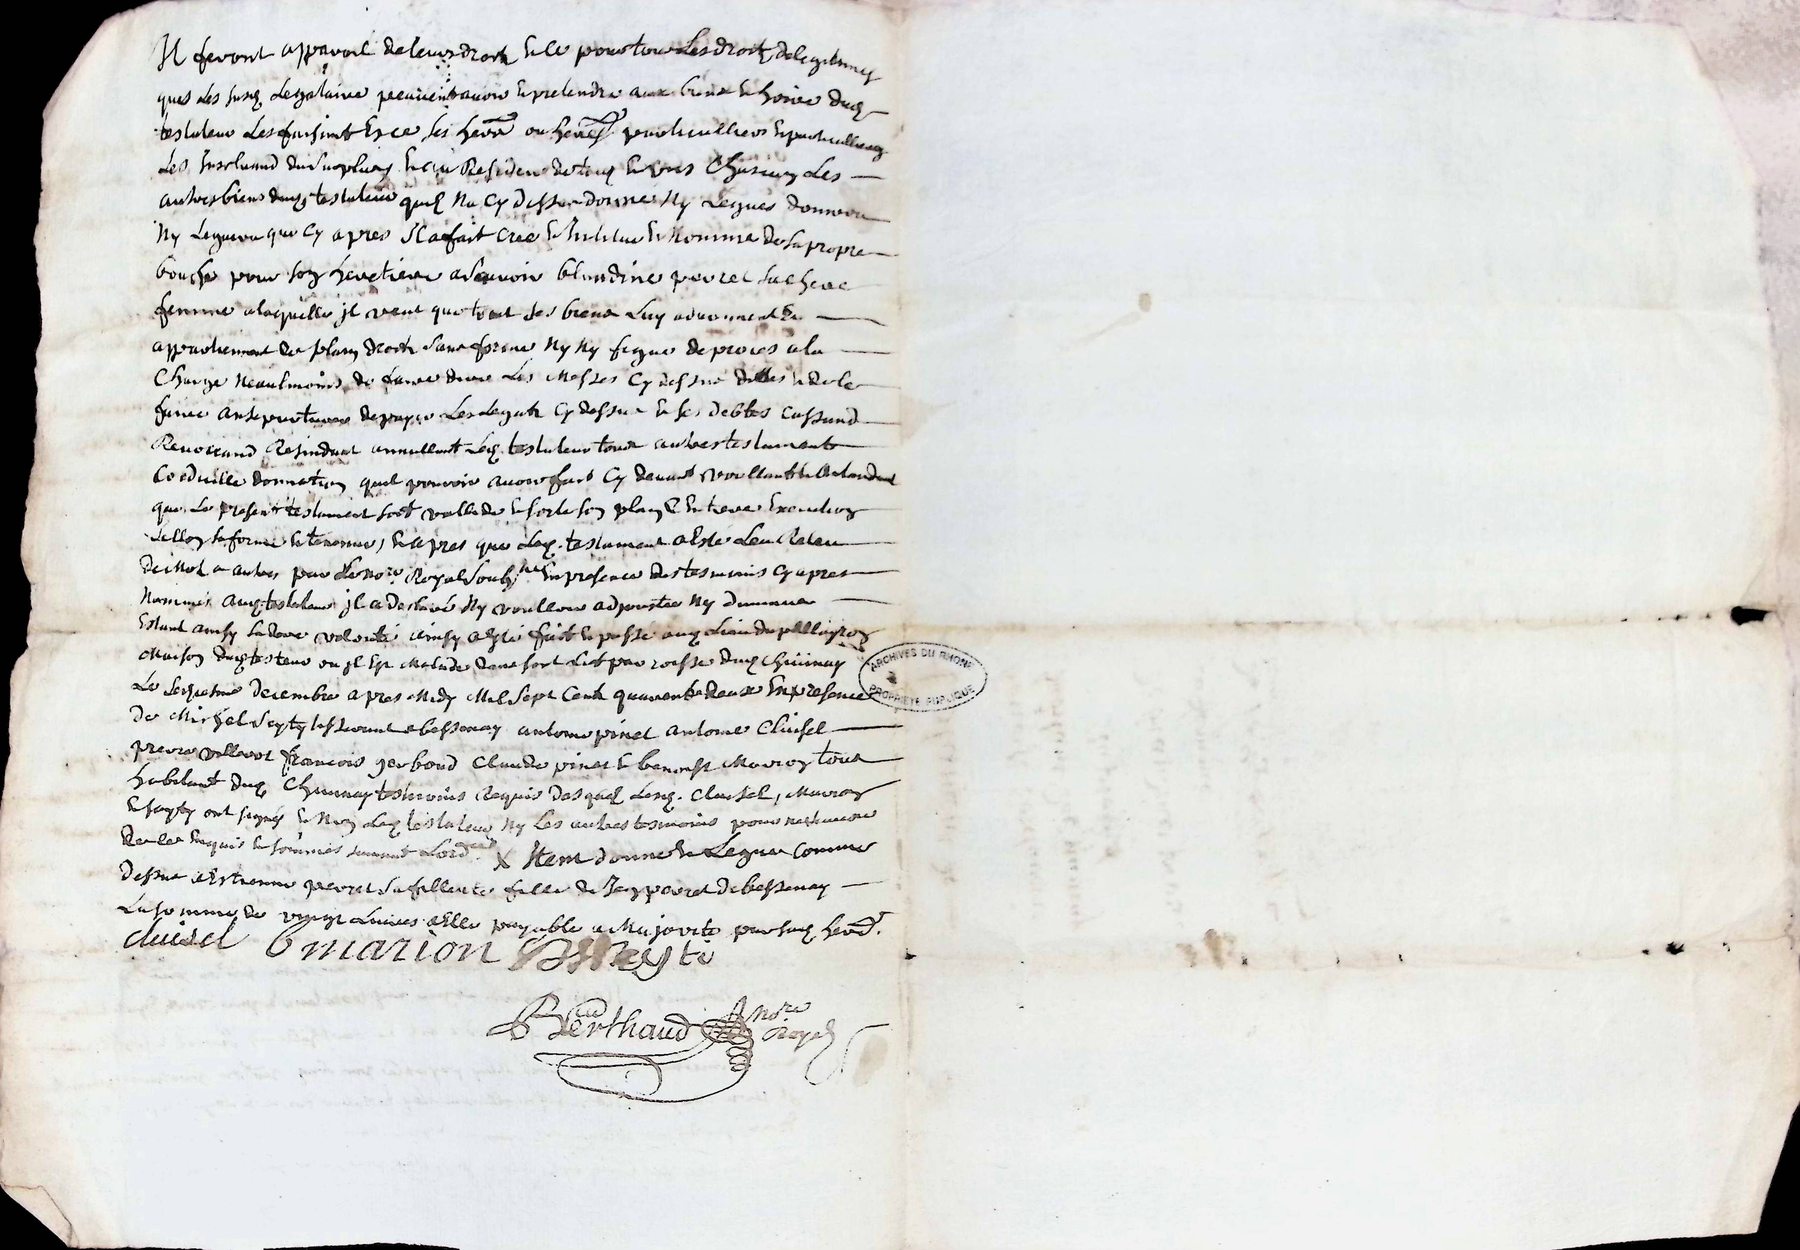 Il feront apparoil de leurs droit & ce pour tous les droit de legitimes
ques les susq legataire peuvent avoir & prelendre aux biens & hoirie duq
testateur les faisant & ce ses hers ou heres particulliers & particullieres
les & au Residu de tous & uns Chacung les
autres biens dung testateur quil Na Cy dessu donné Ny legués donnera
Ny leguera que Cy apres Il a fait Cree & Institue & Nomme de sa propre
bouche pour son heretiere a scavoir blandine peret sa chere
femme a laquelle jl veut que tout ses biens luy advennent &
appartiennent de plain droit sans forme Ny Ny figue de proces a la
Charge Neaulmoins de faire dire les Messes Cy dessus dittes & de le
faire de payer les legats Cy dessus & ses debtes Cassand
Revocand Resindant annullant leq testateur tous autres testament
Coddicille donnation quil pouroir avoir fait Cy devant voullant & Entandant
que le present testament soit vallide & sorte son plain & Entiere Execution
sellon sa forme & teneur, & apres que leq. testament a Esté leu Releu
de Mot a autres par le nore Royal soubne En presence des tesmoins Cy apres
Nommés auq. testateur jl a desclaré Ny voulloir adjouster Ny diminuer
Estant ainsy sa dere volonté ainsy a Esté fait & passe auq lieu du pellagron
Maison duq testeur ou jl Est Malade dans sont lict parroisse duq Chivinay
le sesiesme decembre apres Midy Mil sept Cent quarente deux En presence
de Michel seyty a bessenay antoine pinet antoine Cluisel
pierre villevot francois gerboud Claude pinet & benoist Marion tous
habitant duq Chivinay tesmoins Requis desquel lesq. Cluisel, Marion
& seyty ont signés & Non leq testateur Ny les autres tesmoins pour ne scavoir
de ce Enquis & sommés suivant lordce X Item donne & legue comme
dessus a Estienne peret sa fille de Jean peret de bessenay
la somme de vingt livres a Elle payable a Majorite par sad herd.
cluisel b marion M seyti
Berthaud Nore
Royal
ARCHIVES DU RHONE
PROPRIÉTÉ PUBLIQUE